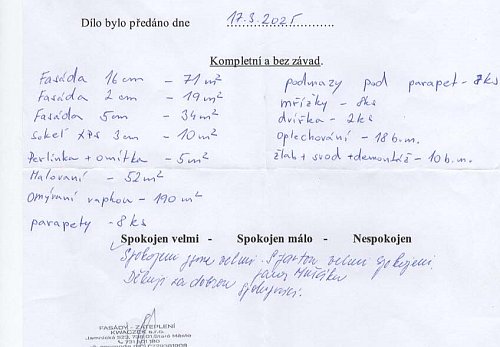 Dílo bylo předáno dne 17.3.2025
Kompletní a bez závad.
Fasáda 16 cm – 71 m²
Fasáda 2 cm – 19 m²
Fasáda 5 cm – 34 m²
sokel XPS 3 cm – 10 m²
Perlinka + omítka – 5 m²
Malování – 52 m²
Omývání vapkou – 190 m²
parapety – 8 ks
podmazy pod parapet – 8 ks
mřížky – 8 ks
dvířka – 2 ks
oplechování – 18 b.m.
žlab + svod + demontáž – 10 b.m.
Spokojen velmi - Spokojen málo - Nespokojen
Spokojeni jsme velmi. S partou velmi spokojeni
Děkuji za dobrou
FASÁDY - ZATEPLENÍ
KWACZEK s.r.o.
Jamnická 523, 739 01 Staré Město